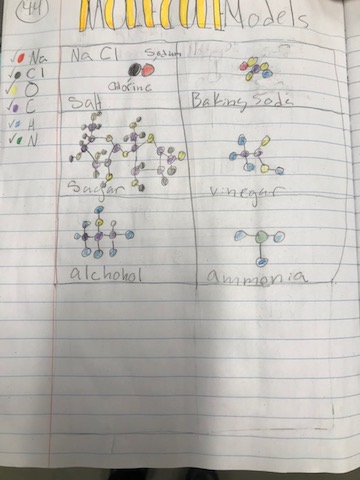 44
MOLECULE Models
Na
Cl
O
C
H
N
NaCl Sodium
Chlorine
Salt
Baking Soda
Sugar
vinegar
alchohol
ammonia